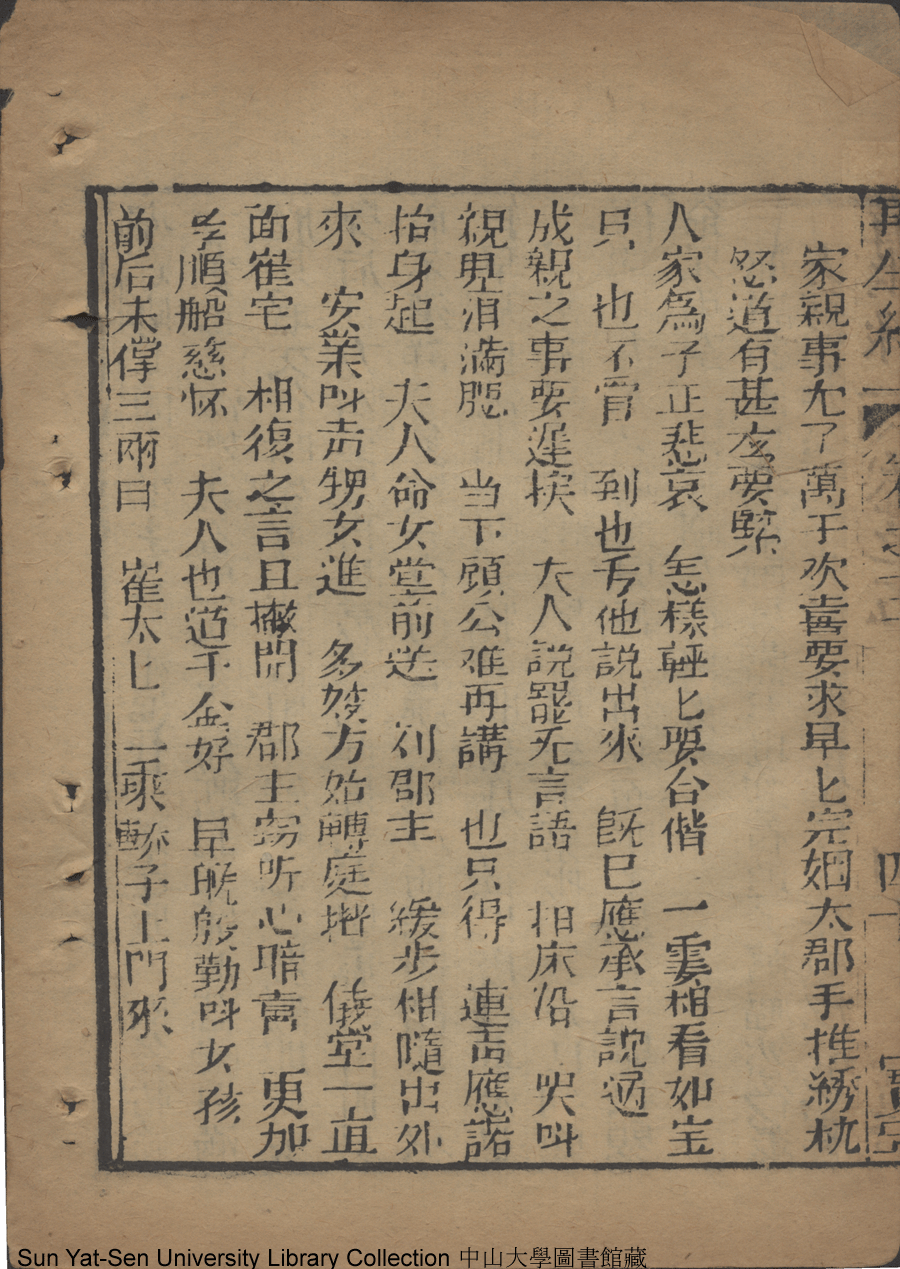 再生緣 卷之十 四十 寶寧
家親事允了萬千欢喜要求早匕完姻太郡手推綉枕
怒道有甚広要緊
人家爲子正悲哀 怎樣輕匕娶台偕 一霎相看如宝
只 也不肯 到也亏他說出來 既已應承言說过
成親之事要遲挨 夫人說罷无言語 拍床沿 哭叫
親児泪滿腮 当下顧公难再講 也只得 連声應諾
抬身起 夫人命女堂前送 刘郡主 緩步相隨出外
來 安業叫声甥女進 多姣方始轉庭堦 儀堂一直
面崔宅 相復之言且撇開 郡主窃听心暗喜 更加
孝順船慈怀 夫人也道千金好 早晚殷勤叫女孩
前后未停三兩日 崔太匕 一乘轎子上門來
Sun Yat-Sen University Library Collection 中山大學圖書館藏